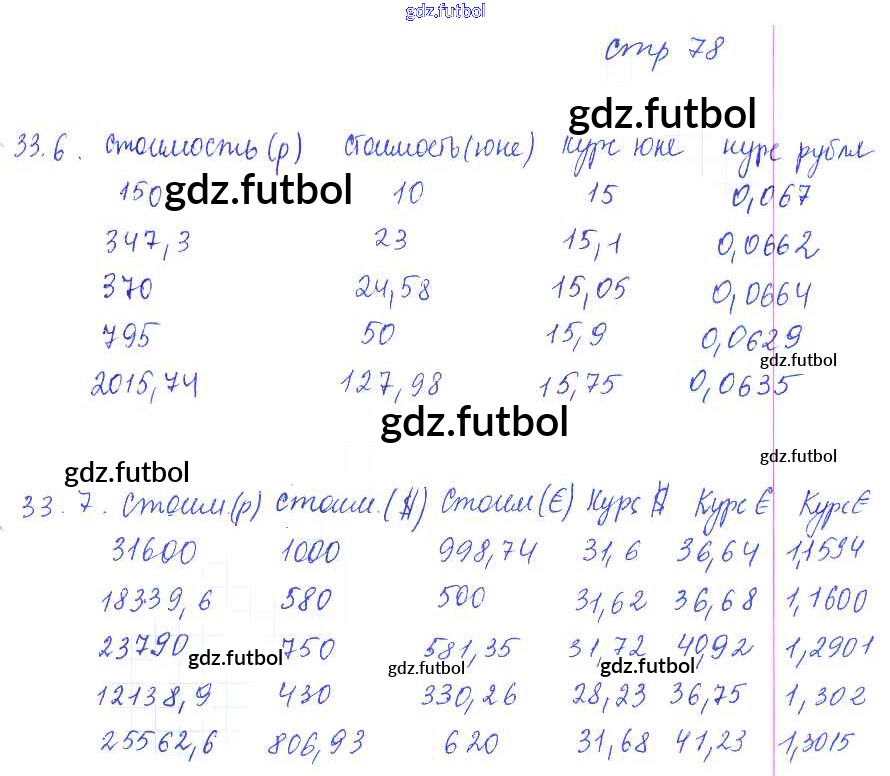 gdz.futbol
стр 78
gdz.futbol
33.6. стоимость (р) стоимость (юне) курс юне курс рубля
150 gdz.futbol 10 15 0,067
347,3 23 15,1 0,0662
370 24,58 15,05 0,0664
795 50 15,9 0,0629
gdz.futbol
2015,74 127,98 15,75 0,0635
gdz.futbol
gdz.futbol
gdz.futbol
33.7. Стоим.(р) стоим.($) Стоим(€) Курс $ Курс € Курс €
31600 1000 998,74 31,6 36,64 1,1594
18339,6 580 500 31,62 36,68 1,1600
23790 750 581,35 31,72 40,92 1,2901
gdz.futbol gdz.futbol gdz.futbol
12138,9 430 330,26 28,23 36,75 1,302
25562,6 806,93 620 31,68 41,23 1,3015